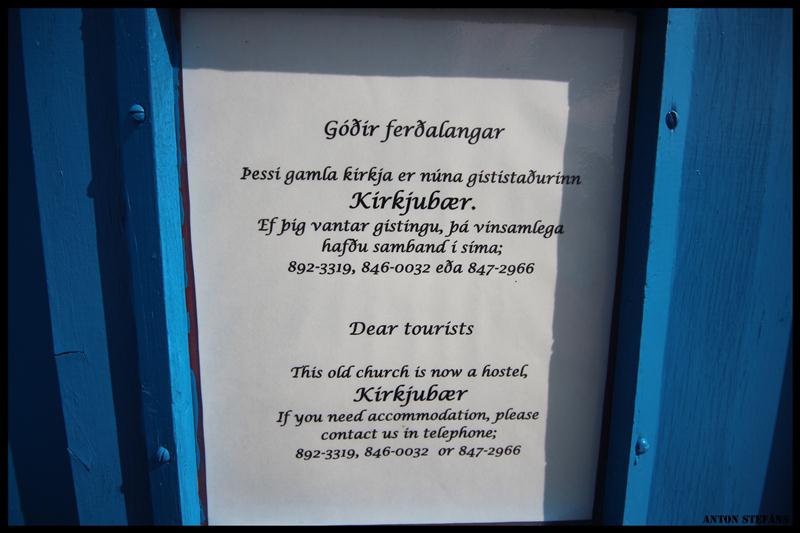 Góðir ferðalangar
Þessi gamla kirkja er núna gististaðurinn
Kirkjubær.
Ef þig vantar gistingu, þá vinsamlega
hafðu samband í síma;
892-3319, 846-0032 eða 847-2966
Dear tourists
This old church is now a hostel,
Kirkjubær
If you need accommodation, please
contact us in telephone;
892-3319, 846-0032 or 847-2966
ANTON STEFÁNS